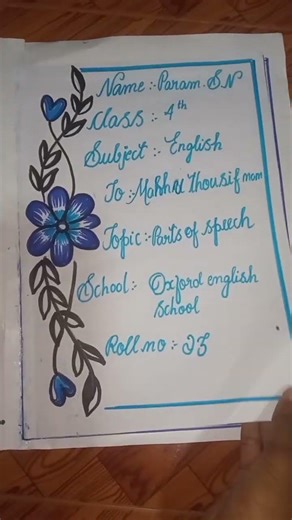 Name :- Param. S.N
Class :- 4th
Subject :- English
To :- Thousif mam
Topic :- Parts of speech
School :- Oxford english
School
Roll no :- 23